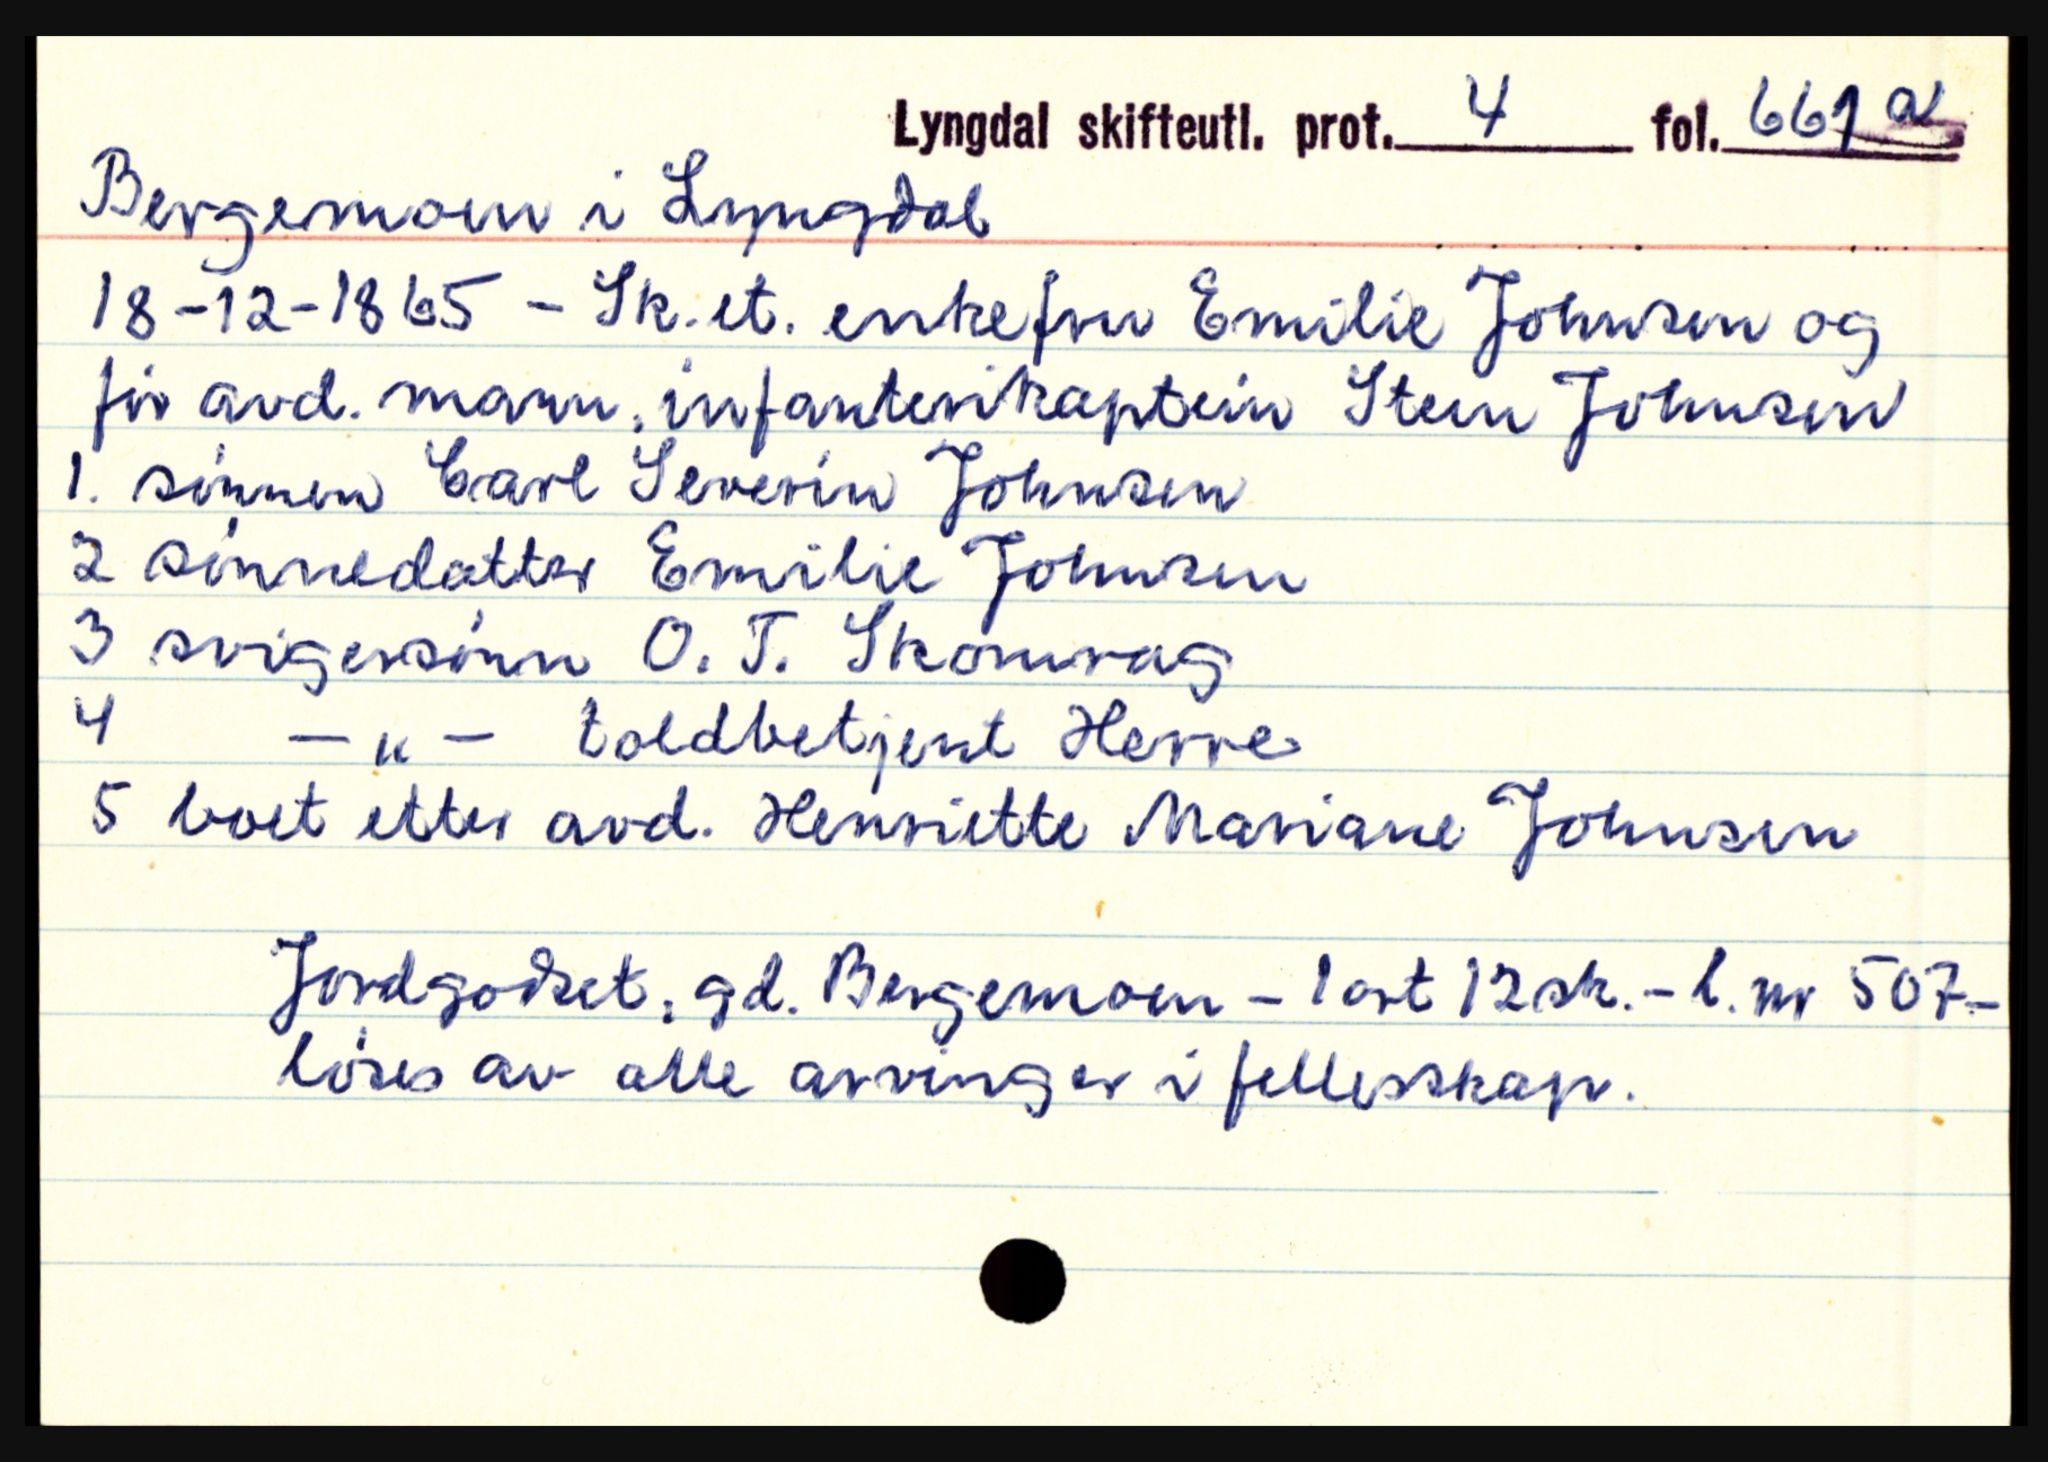 Lyngdal skifteutl. prot. 4 fol. 661 a
Bergemoen i Lyngdal
18-12-1865 - Sk. et. enkefru Emilie Johnsen og
før avd. mann, infanterikaptein Stein Johnsen
1. sønnen Carl Severin Johnsen
2 sønnedatter Emilie Johnsen
3 svigersønn O. T. Skomrag
4 - " - toldbetjent Herre
5 boet etter avd. Henriette Mariane Johnsen
Jordgodset, gd. Bergemoen - 1 ort 12 sk. - l. nr 507 -
løses av alle arvinger i fellesskap.